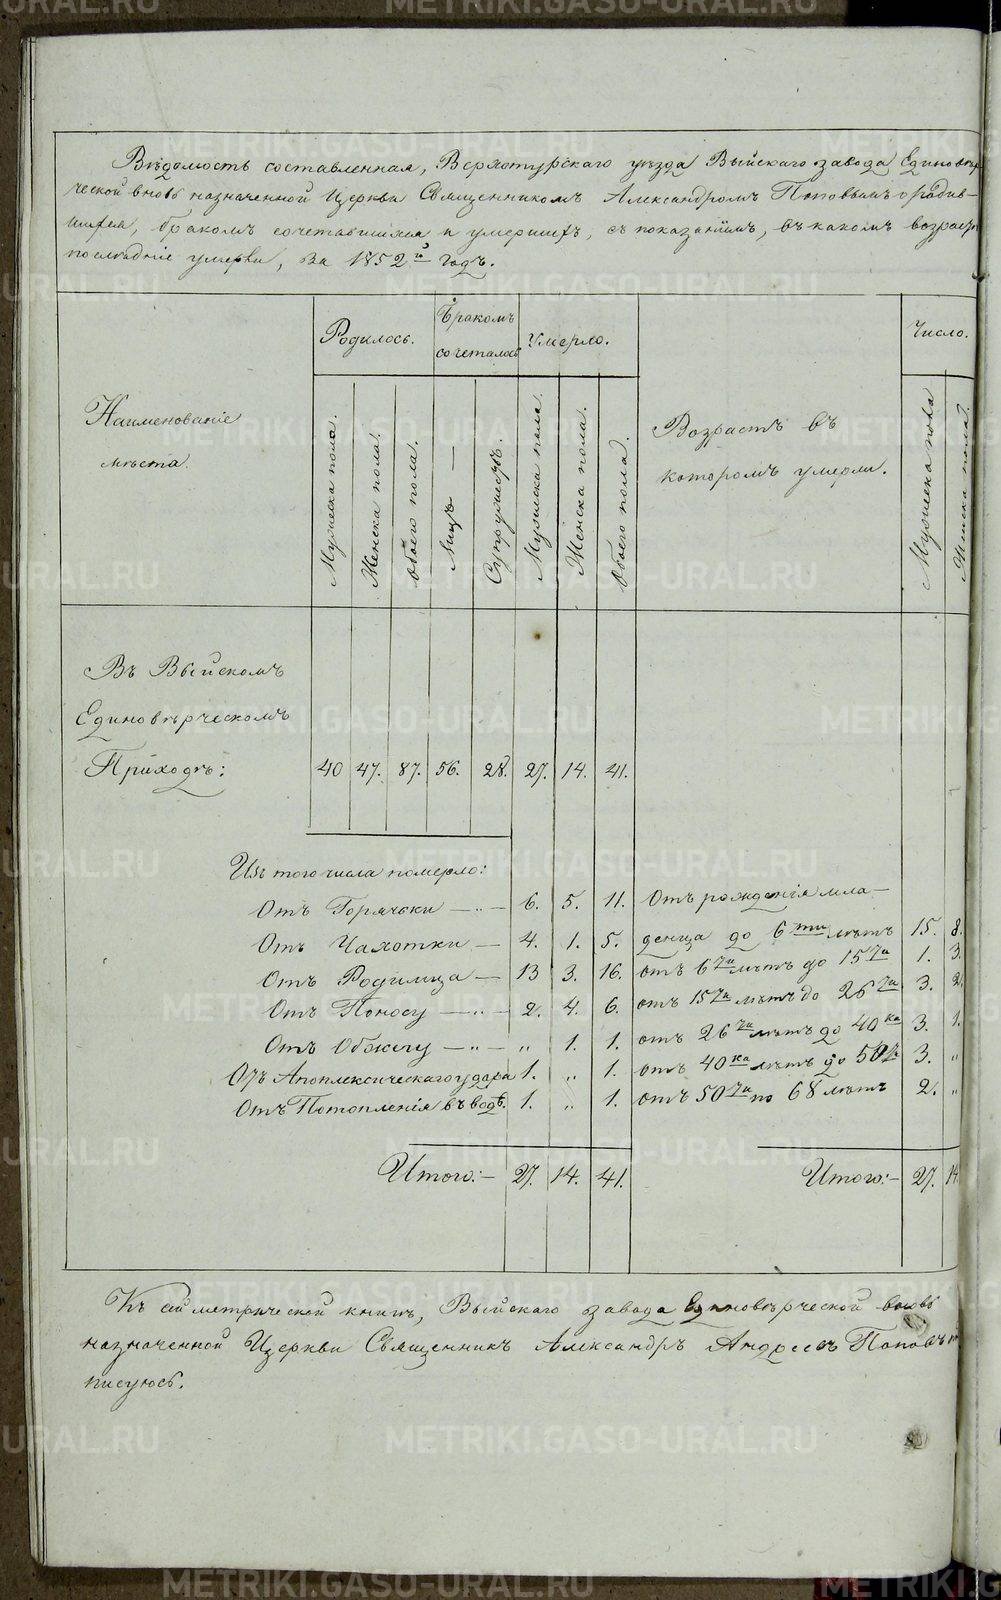 Вѣдомость составленная, Верхотурскаго уѣзда Выйскаго завода Единовѣр-
ческой вновь назначенной Церкви Священникомъ Александромъ Поповымъ о родив-
шихся, бракомъ сочетавшихся и умершихъ, съ показаніемъ, въ какомъ возрастѣ
послѣдніе умерли, за 1852й годъ.
Наименованіе
мѣста.
Родилось.
Бракомъ
сочеталось
Умерло.
Возрастъ въ
которомъ умерли.
Число.
Мужеска пола.
Женска пола.
Обоего пола.
Лицъ —
Супружествъ.
Мужеска пола.
Женска пола.
Обоего пола.
Мужеска пола
Женска пола.
Въ Выйскомъ
Единовѣрческомъ
Приходѣ: 40 47. 87. 56. 28. 27. 14. 41.
Изъ того числа померло:
Отъ Горячки — „ — 6. 5. 11. Отъ рожденія мла-
Отъ Чахотки — 4. 1. 5. денца до 6ти лѣтъ 15. 8.
Отъ Родимца — 13 3. 16. отъ 6ти лѣтъ до 15ти 1. 3.
Отъ Поносу — „ — 2. 4. 6. отъ 15ти лѣтъ до 26ти 3. 2.
Отъ Обжегу — „ — „ 1. 1. отъ 26ти лѣтъ до 40ка 3. 1.
Отъ Апоплексическаго удара 1. „ 1. отъ 40ка лѣтъ до 50ти 3. „
Отъ Потопленія въ водѣ. 1. „ 1. отъ 50ти по 68 лѣтъ 2. „
Итого:— 27. 14. 41. Итого:— 27. 14.
Къ сей метрической книгѣ, Выйскаго завода Единовѣрческой вновь
назначенной Церкви Священникъ Александръ Андреевъ Поповъ
писуюсь.